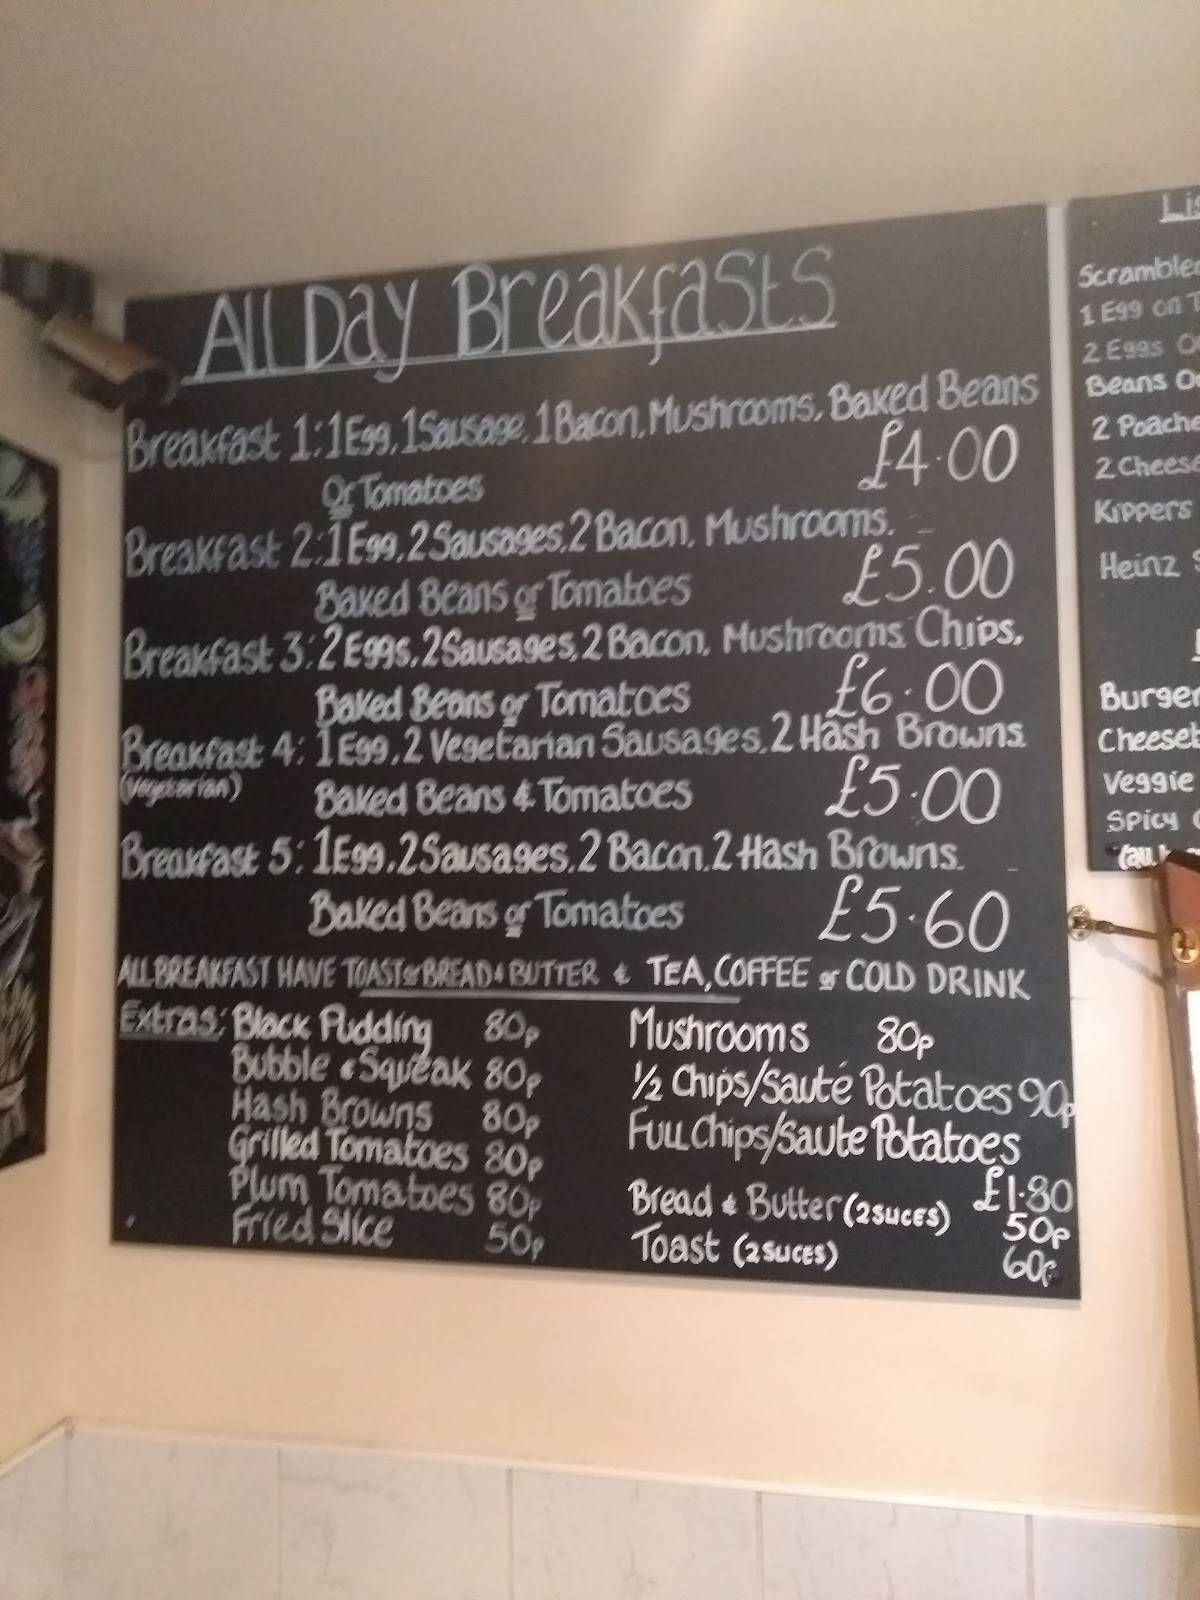 All Day Breakfasts
Breakfast 1: 1 Egg, 1 Sausage, 1 Bacon, Mushrooms, Baked Beans
Or Tomatoes £4.00
Breakfast 2: 1 Egg, 2 Sausages, 2 Bacon, Mushrooms,
Baked Beans or Tomatoes £5.00
Breakfast 3: 2 Eggs, 2 Sausages, 2 Bacon, Mushrooms Chips,
Baked Beans or Tomatoes £6.00
Breakfast 4: 1 Egg, 2 Vegetarian Sausages, 2 Hash Browns
(Vegetarian) Baked Beans & Tomatoes £5.00
Breakfast 5: 1 Egg, 2 Sausages, 2 Bacon, 2 Hash Browns.
Baked Beans or Tomatoes £5.60
ALL BREAKFAST HAVE TOAST or BREAD & BUTTER & TEA, COFFEE or COLD DRINK
Extras: Black Pudding 80p
Bubble & Squeak 80p
Hash Browns 80p
Grilled Tomatoes 80p
Plum Tomatoes 80p
Fried Slice 50p
Mushrooms 80p
1/2 Chips/Sauté Potatoes 90p
Full Chips/Saute Potatoes
£1.80
Bread & Butter (2 SLICES) 50p
Toast (2 SLICES) 60p
1 Egg on
2 Eggs
Beans
2
2 Cheese
Kippers
Heinz
Veggie
Spicy